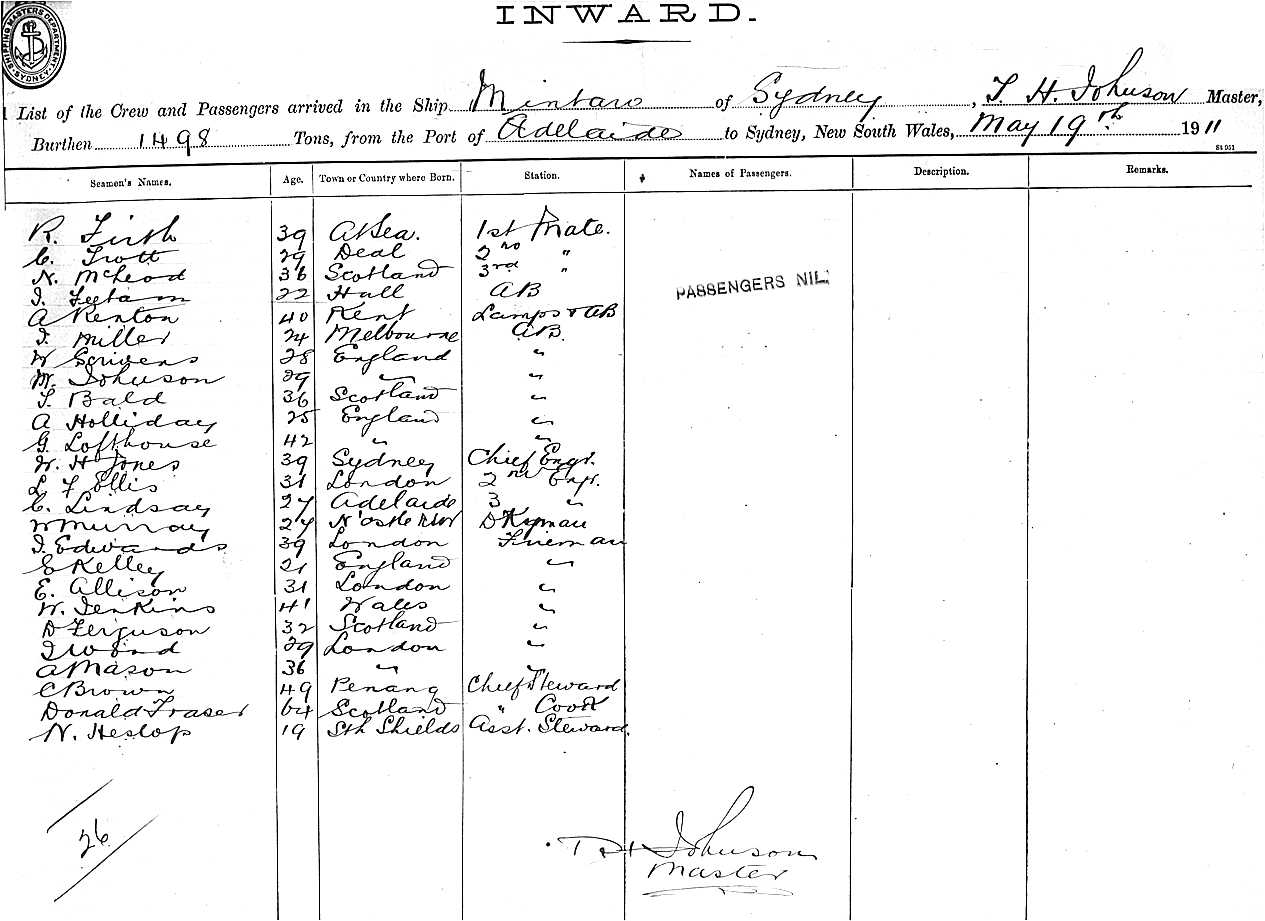 INWARD.
SHIPPING MASTERS DEPARTMENT SYDNEY
List of the Crew and Passengers arrived in the Ship Mintaro of Sydney, T. H. Johnson Master,
Burthen 1498 Tons, from the Port of Adelaide to Sydney, New South Wales, May 19th 1911
St 951
Seamen's Names. Age. Town or Country where Born. Station. Names of Passengers. Description. Remarks.
R. Firth 39 At Sea. 1st Mate.
C. Trott 29 Deal 2nd "
N. McLeod 36 Scotland 3rd "
PASSENGERS NIL.
22 Hull AB
A Renton 40 Kent Lamps & AB
J. Miller 24 Melbourne AB.
W Scrivens 28 England "
M. Johnson 29 " "
T. Bald 36 Scotland "
A Holliday 25 England "
G. Lofthouse 42 " "
W. H Jones 39 Sydney Chief Engr.
L F Ellis 31 London 2nd Engr.
C. Lindsay 27 Adelaide 3 "
W Murray 27 N'castle NSW Dkyman
J. Edwards 39 London Fireman
E Kelley 21 England "
E. Allison 31 London "
W. Jenkins 41 Wales "
D Ferguson 32 Scotland "
J Wood 29 London "
A Mason 36 " "
C Brown 49 Penang Chief Steward
Donald Fraser 64 Scotland " Cook
N. Heslop 19 Sth Shields Asst. Steward.
26
T H Johnson
Master